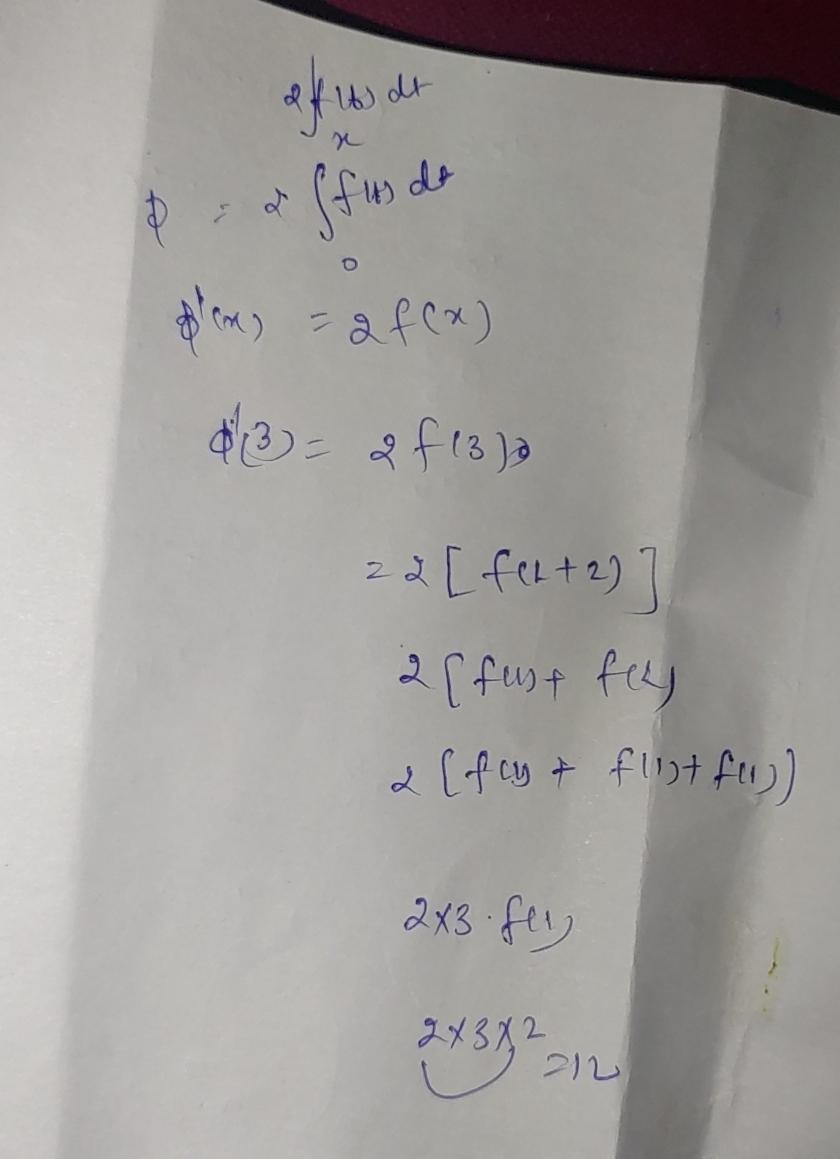 2∫f(t) dt
x
ϕ = 2 ∫f(t) dt
0
ϕ'(x) = 2f(x)
ϕ'(3) = 2f(3)
= 2[f(1+2)]
2[f(1)+ f(2)
2[f(1) + f(1)+f(1)]
2×3·f(1)
2×3×2
=12